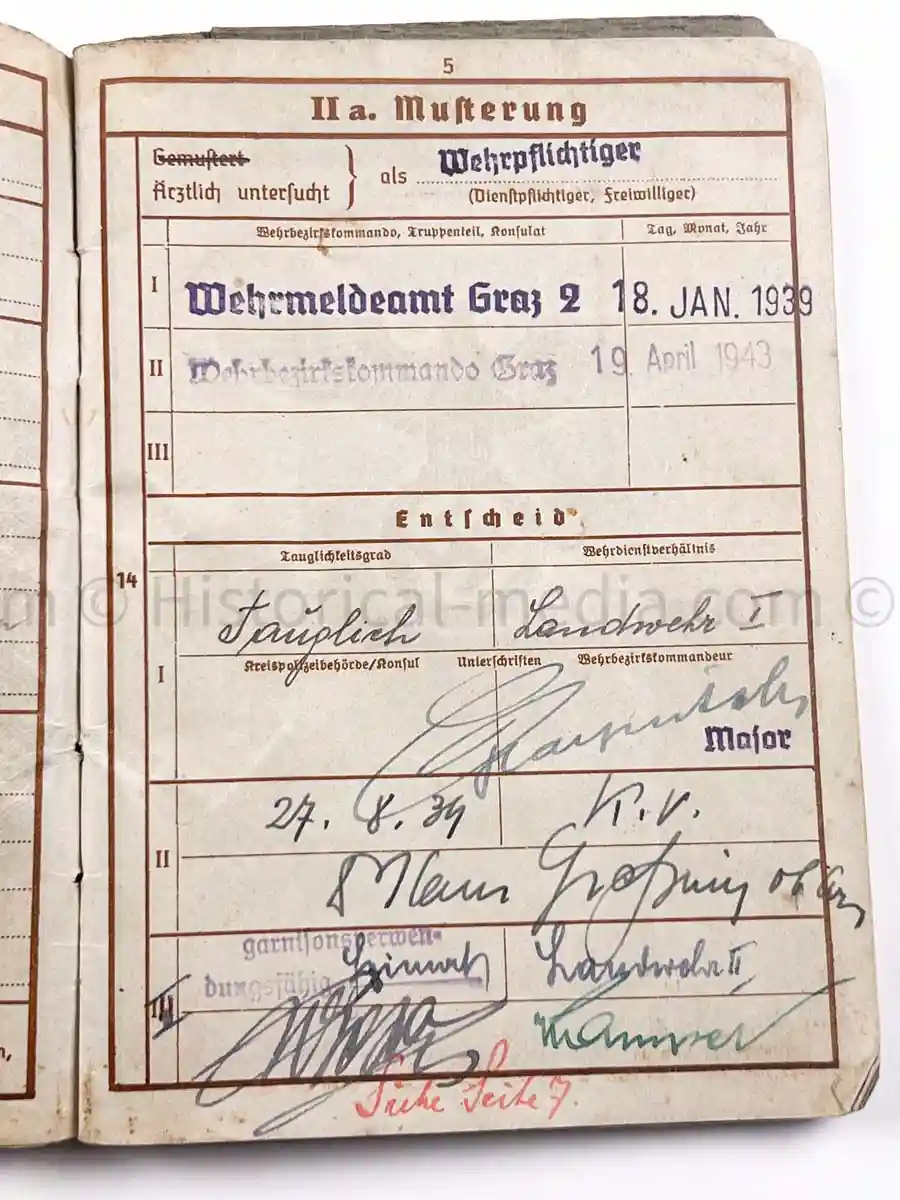 5
II a. Musterung
Gemustert
Ärztlich untersucht
als Wehrpflichtiger
(Dienstpflichtiger, Freiwilliger)
Wehrbezirkskommando, Truppenteil, Konsulat Tag, Monat, Jahr
I Wehrmeldeamt Graz 2 18. JAN. 1939
II Wehrbezirkskommando Graz 19. April 1943
III
Entscheid
Tauglichkeitsgrad Wehrdienstverhältnis
14
© Historical-media.com ©
Tauglich Landwehr I
Kreispolizeibehörde/Konsul Unterschriften Wehrbezirkskommandeur
I
Major
27. 8. 39 K.v.
II
garnisonsverwen-
dungsfähig Heimat Landwehr II
Siehe Seite 7.